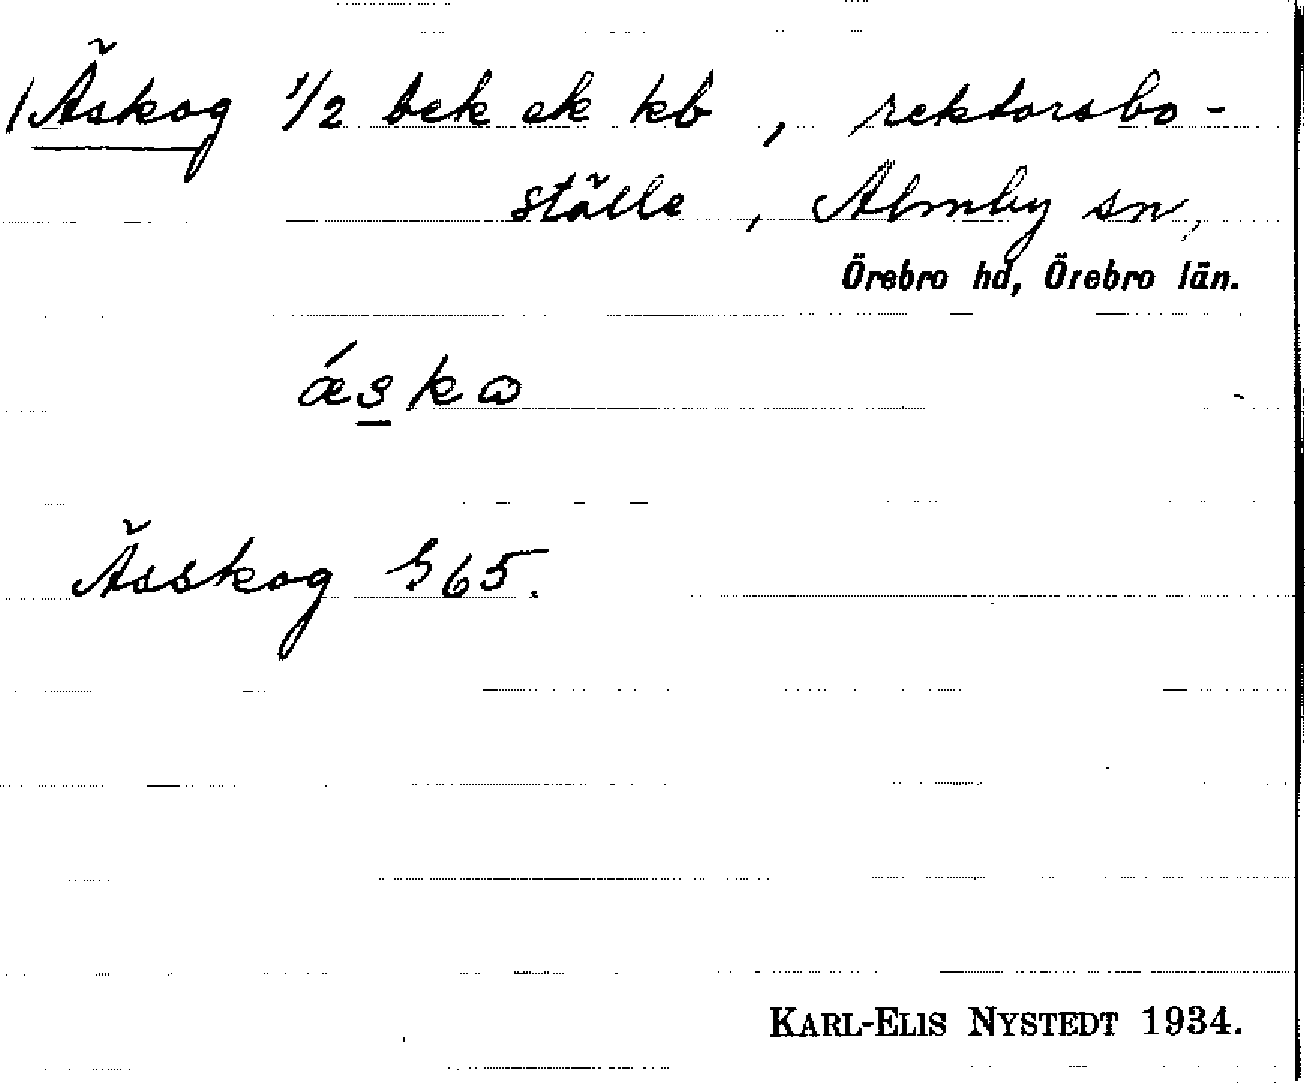 / Äskog 1/2 bek ek kb, rektorsbo-
ställe, Almby sn,
Örebro hd, Örebro län.
ǽskω
Ässkog G65.
KARL-ELIS NYSTEDT 1934.